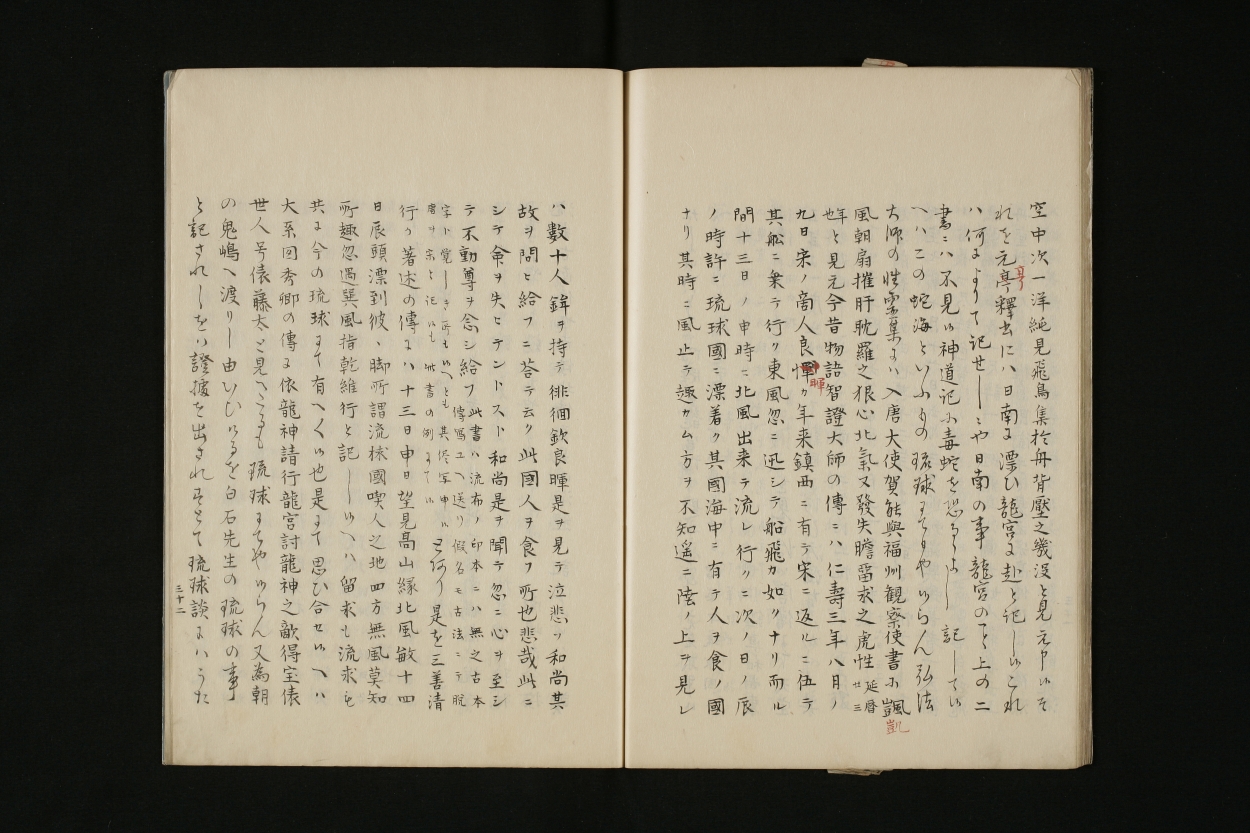 空中次一洋純見飛鳥集於舟背壓之幾没と見元申候そ
れを元亨釋書には日南に漂ひ龍宮に赴と記し候これ
ハ何によりて記せしにや日南の事龍宮のこと上の二
書ニハ不見候神道記に毒蛇を恐るよし記して候
へハこの蛇海といふもの琉球にてもや候らん弘法
大師の性霊集にハ入唐大使賀能與福州観察使書に颽
凱
風朝扇摧肝耽羅之狠心北氣又發失瞻留求之虎性延暦廿三
年と見元今昔物語智證大師の傳ニハ仁壽三年八月ノ
九日宋ノ商人良暉カ年来鎮西ニ有テ宋ニ返ルニ伍テ
其舩ニ乗テ行ク東風忽ニ迅シテ船飛カ如クナリ而ル
間十三日ノ申時ニ北風出来テ流レ行クニ次ノ日ノ辰
ノ時許ニ琉球國ニ漂着ク其國海中ニ有テ人ヲ食ノ國
ナリ其時ニ風止テ趣カム方ヲ不知遥ニ陸ノ上ヲ見レ
ハ數十人鉾ヲ持テ徘徊欽良暉是ヲ見テ泣悲ツ和尚其
故ヲ問ヒ給フニ荅テ云ク此國人ヲ食フ所也悲哉此ニ
シテ命ヲ失ヒテントスト和尚是ヲ聞テ忽ニ心ヲ至シ
テ不動尊ヲ念シ給フ此書ハ流布ノ印本ニハ無之古本
傳寫ユヘ送リ假名モ古法ニテ脱
字ト覚しき所も候へとも其侭写申候
唐ヲ宋と記候も此書の例にて候
と何り是を三善清
行の著述の傳にハ十三日申日望見高山縁北風敏十四
日辰頭漂到彼、脚所謂流捄國喫人之地四方無風莫知
所趣忽遇巽風指乾維行と記し候へハ留求も流求も
共に今の琉球にて有へく候也是にて思ひ合せ候へハ
大系図秀卿の傳に依龍神請行龍宮討龍神之敵得宝俵
世人号俵藤太と見へたるも琉球にてや候らん又為朝
の鬼嶋へ渡りし由いひ候を白石先生の琉球の事
と記されしをハ證據を出されすとて琉球談にハうた
三十二